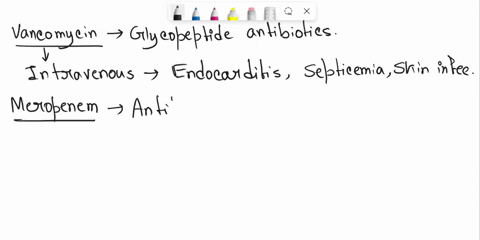 Vancomycin → Glycopeptide antibiotics.
Intravenous → Endocarditis, Septicemia, Skin infec.
Meropenem → Anti